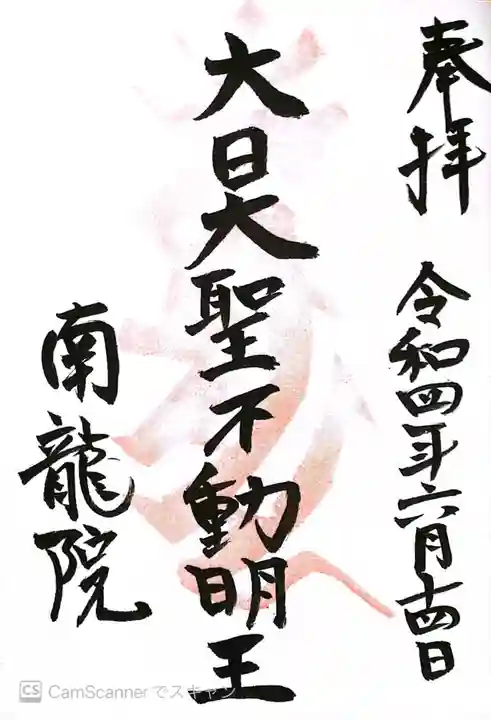 奉拝
令和四年六月十四日
大日大聖不動明王
南龍院
CamScannerでスキャン